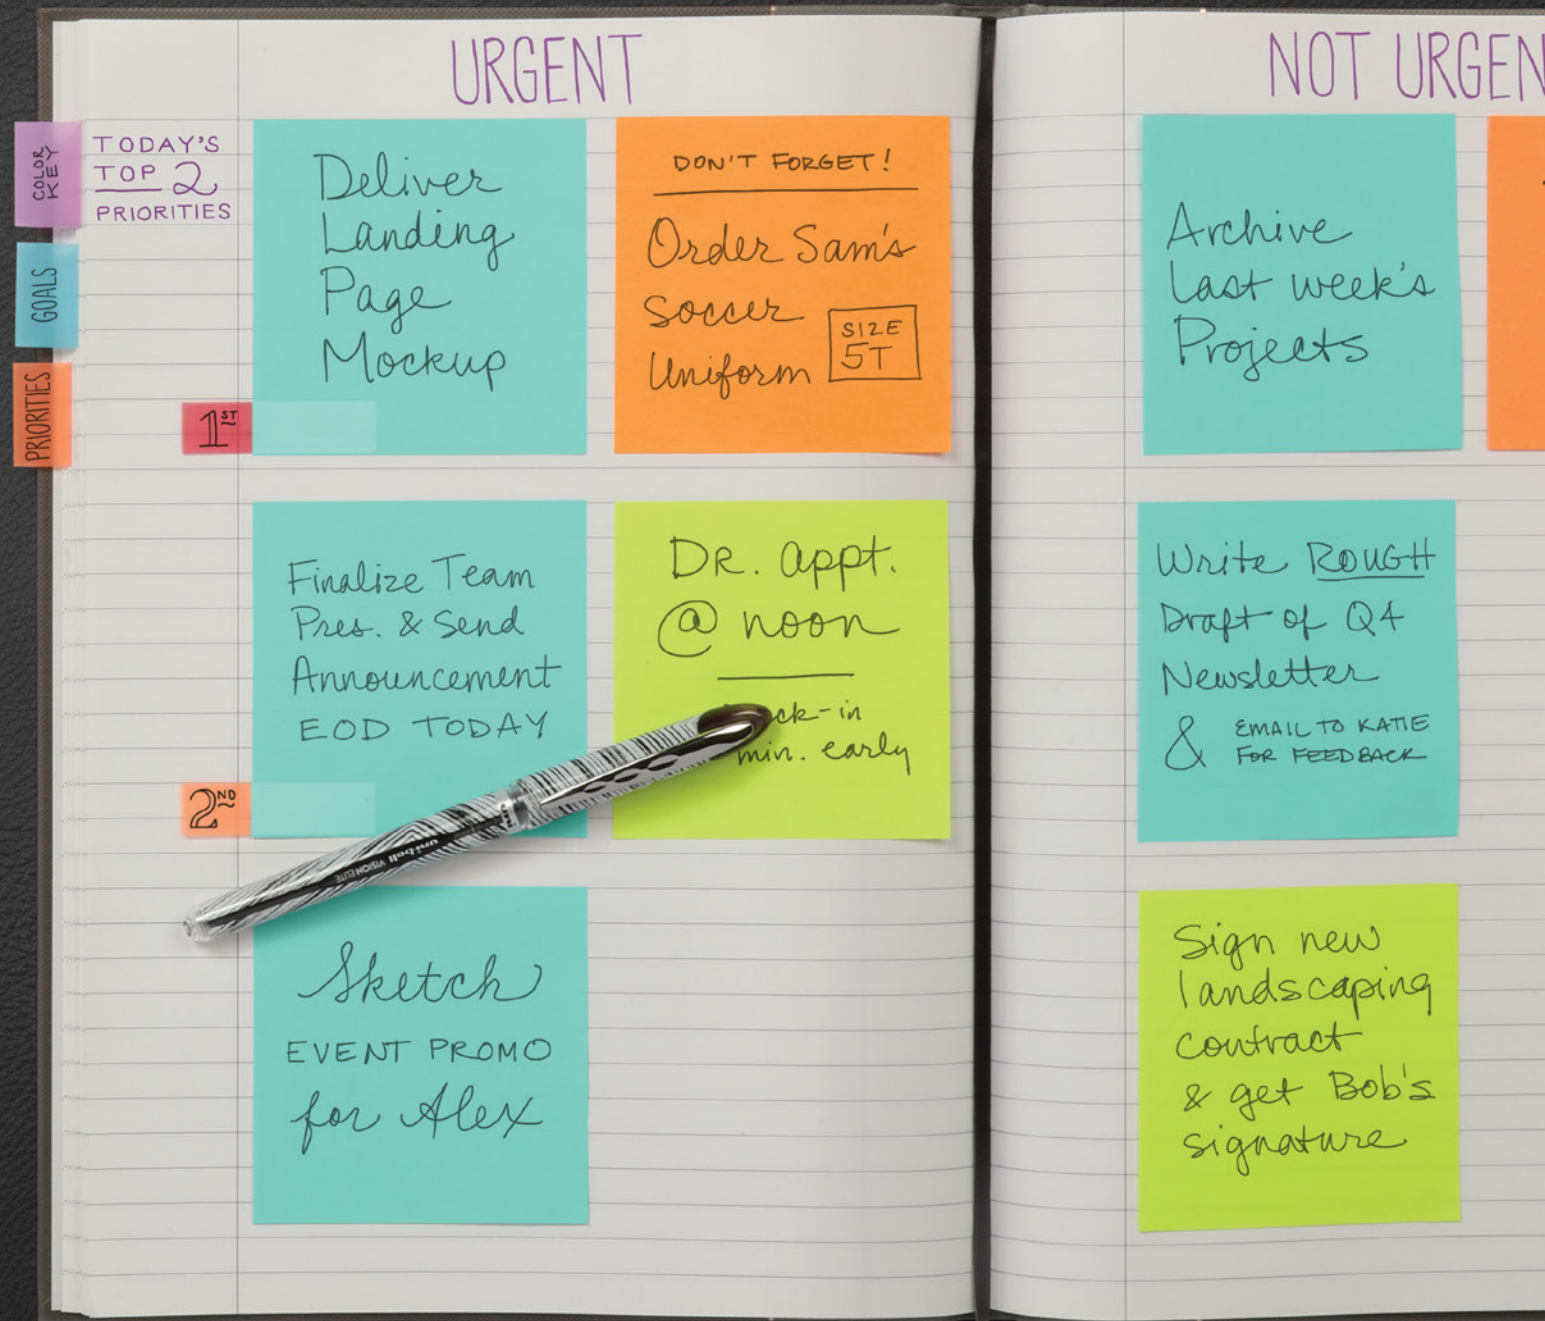 URGENT
COLOR
KEY
GOALS
PRIORITIES
TODAY'S
TOP 2
PRIORITIES
Deliver
Landing
Page
Mockup
1ST
DON'T FORGET!
Order Sam's
Soccer
Uniform
SIZE
5T
Finalize Team
Pres. & Send
Announcement
EOD TODAY
2ND
DR. appt.
@ noon
min. early
uni-ball VISION ELITE
Sketch
EVENT PROMO
for Alex
NOT
Archive
Last week's
Projects
Write ROUGH
Draft of Q4
Newsletter
& EMAIL TO KATIE
FOR FEEDBACK
Sign new
landscaping
contract
& get Bob's
signature